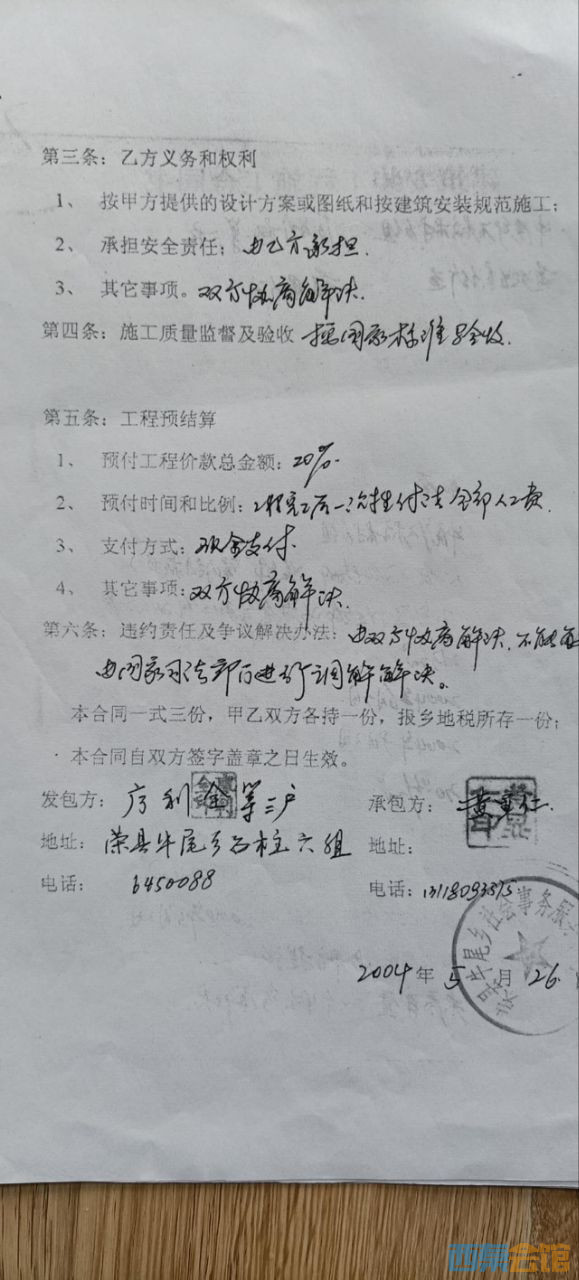 第三条：乙方义务和权利
1、 按甲方提供的设计方案或图纸和按建筑安装规范施工；
2、 承担安全责任；由乙方承担.
3、 其它事项。双方协商解决.
第四条：施工质量监督及验收 按国家标准验收.
第五条：工程预结算
1、 预付工程价款总金额：20%.
2、 预付时间和比例：工程完工后一次性付清全部人工费.
3、 支付方式：现金支付.
4、 其它事项：双方协商解决.
第六条：违约责任及争议解决办法：由双方协商解决.不能
由国家司法部门进行调解解决。
本合同一式三份，甲乙双方各持一份，报乡地税所存一份；
本合同自双方签字盖章之日生效。
发包方： 利金等三户 承包方：
地址： 荣县牛尾乡石柱六组 地址：
电话： 6450088 电话：
2004 年 5 月 26
牛尾乡社会事务服
西祠会馆